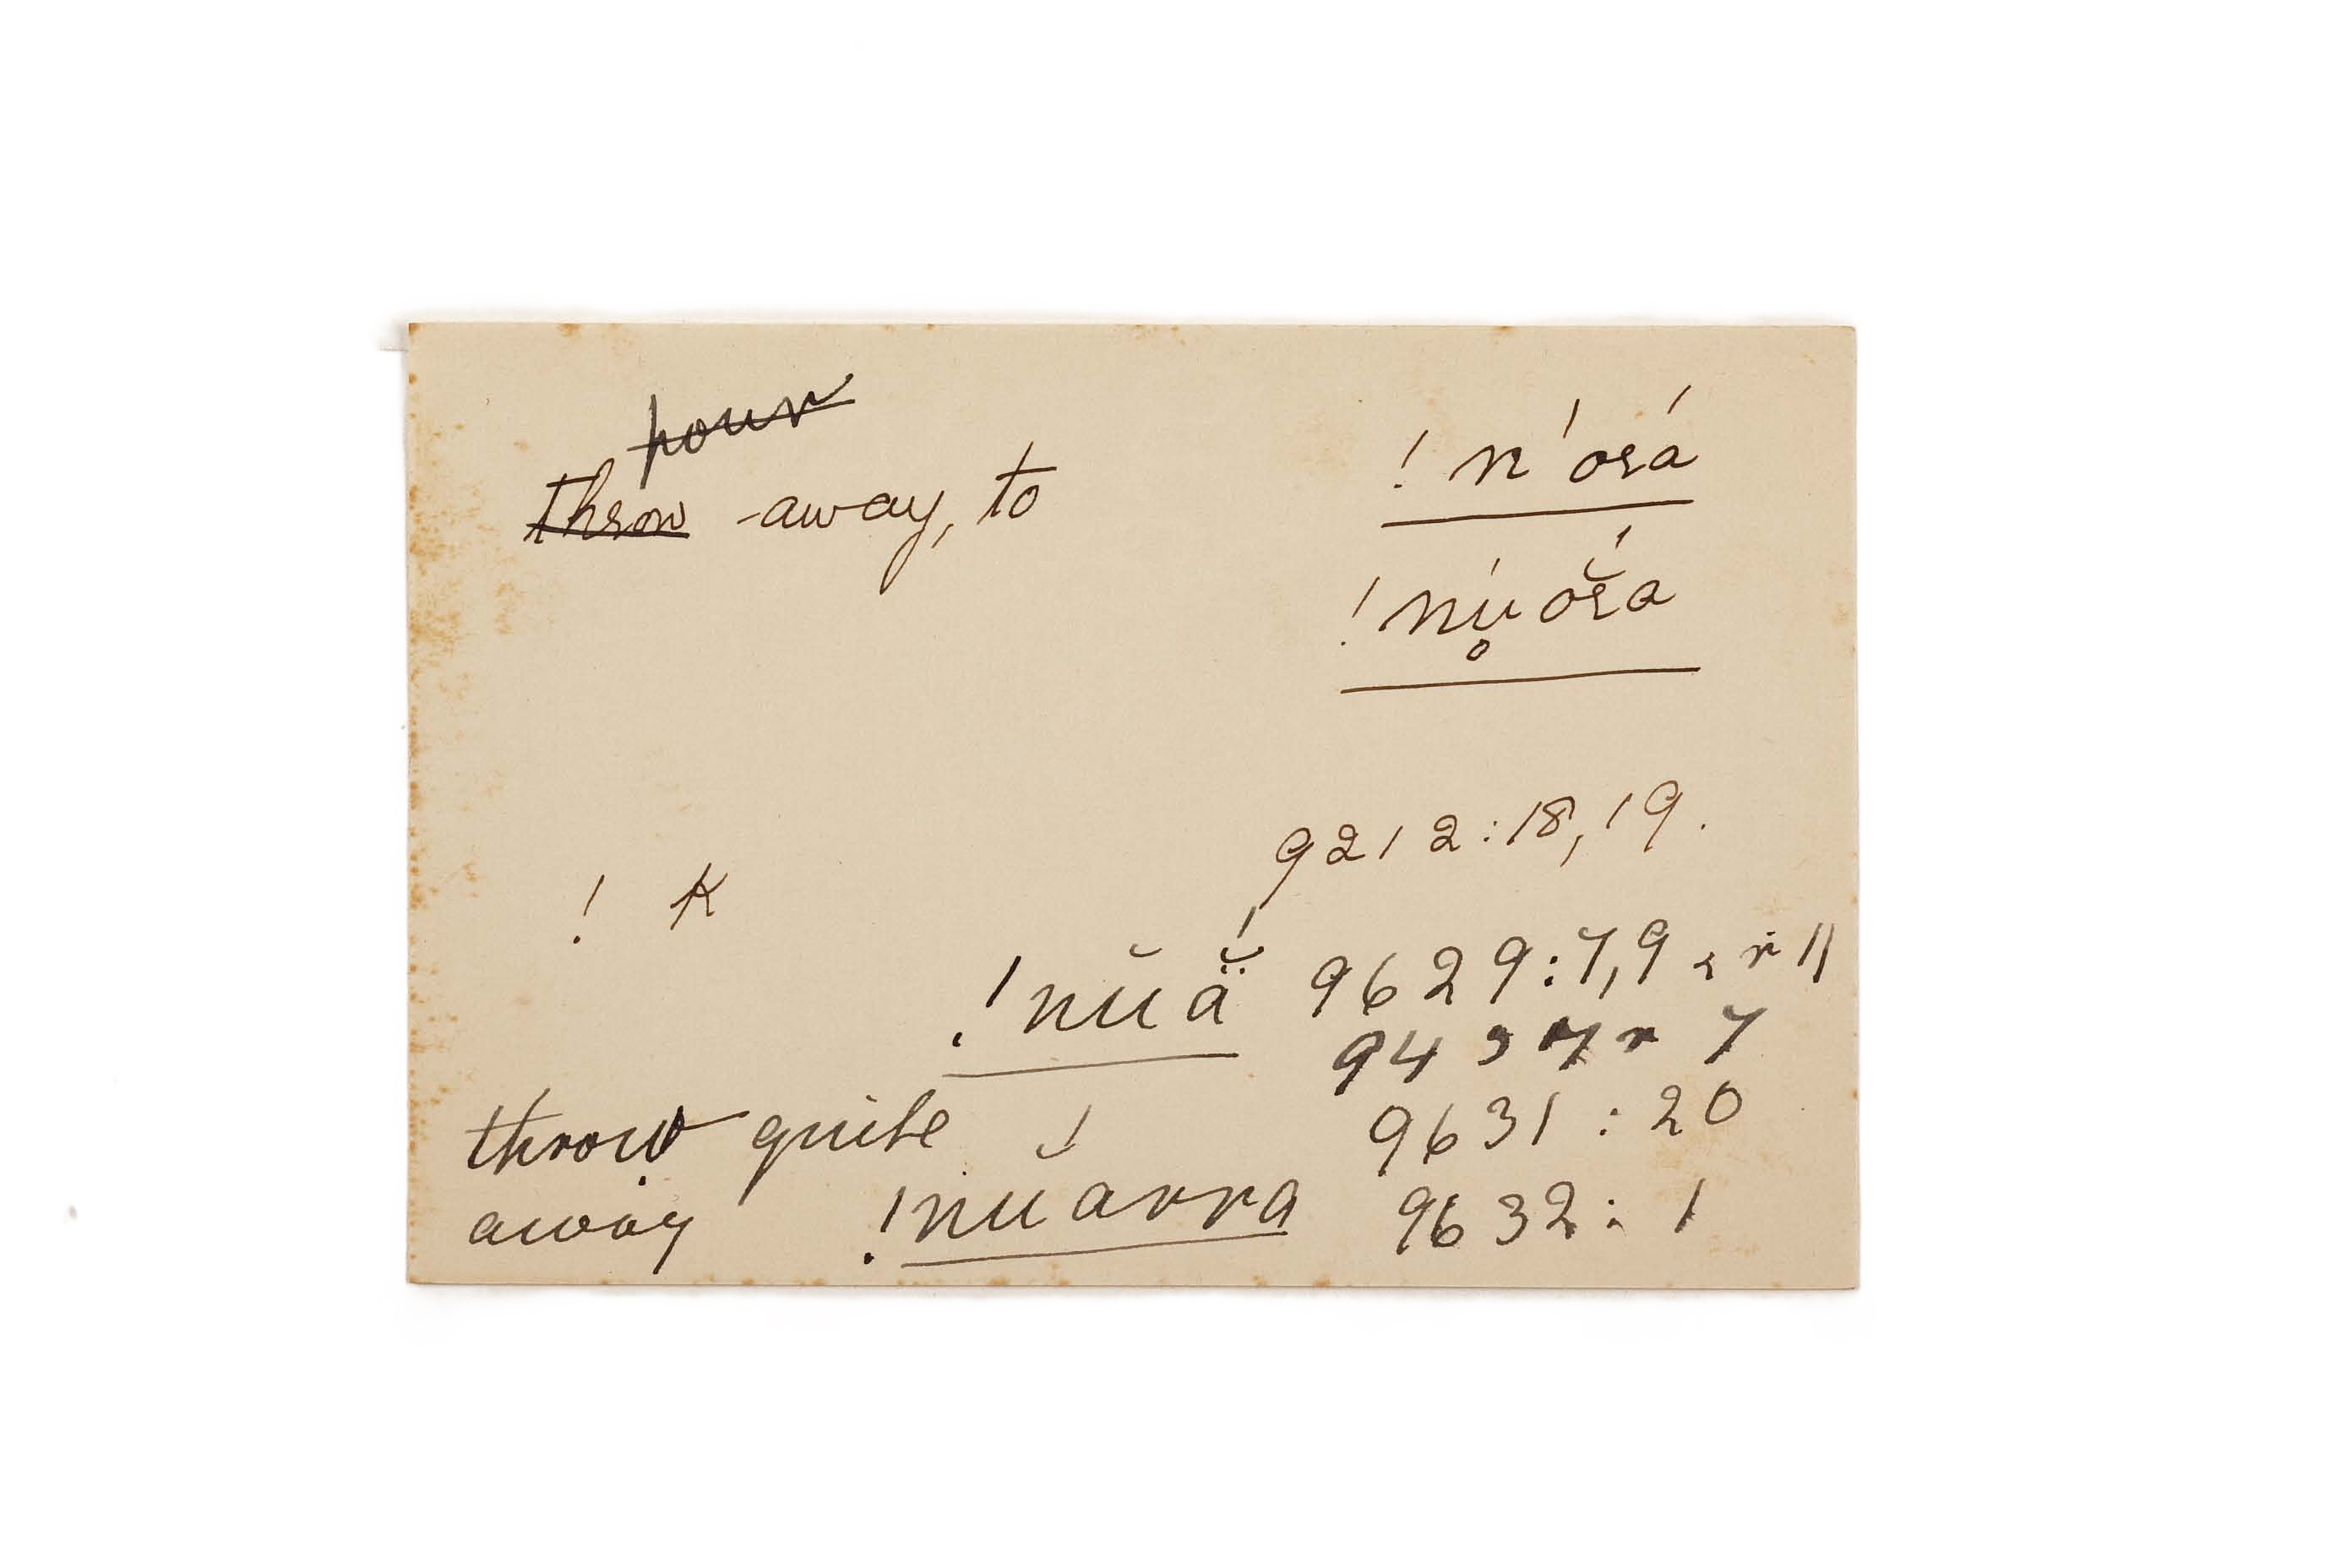 pour
throw -away, to
! n'orá
! nų́ŏ́ra
9212:18,19.
! K
! nŭä̆́ 9629:7,9 r 11
7
9631 : 20
throw quite
away ! nŭ́arra 9632: 1